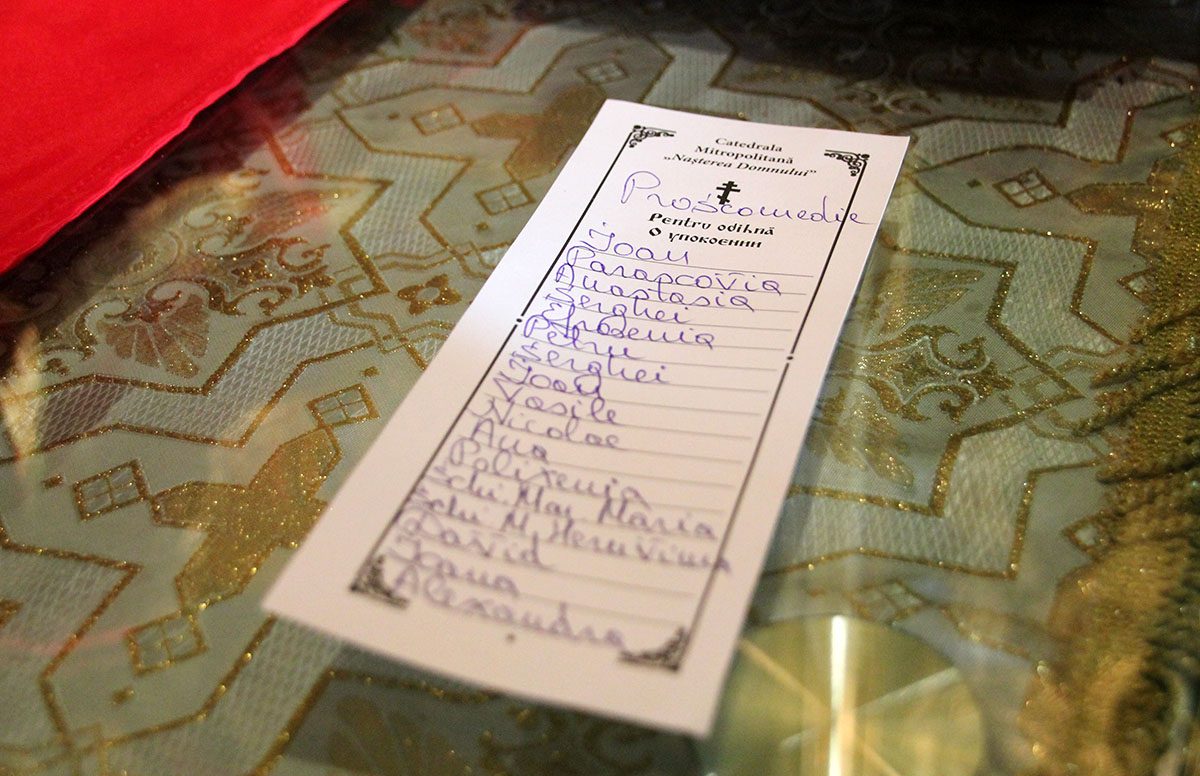 Catedrala
Mitropolitană
„Nașterea Domnului”
Proscomedie
Pentru odihnă
О упокоении
Ioan
Parascovia
Anastasia
Serghei
Petru
Serghei
Ioan
Vasile
Nicolae
Ana
Polixenia
Schi Maria
Schi M Heruvima
David
Ioana
Alexandra